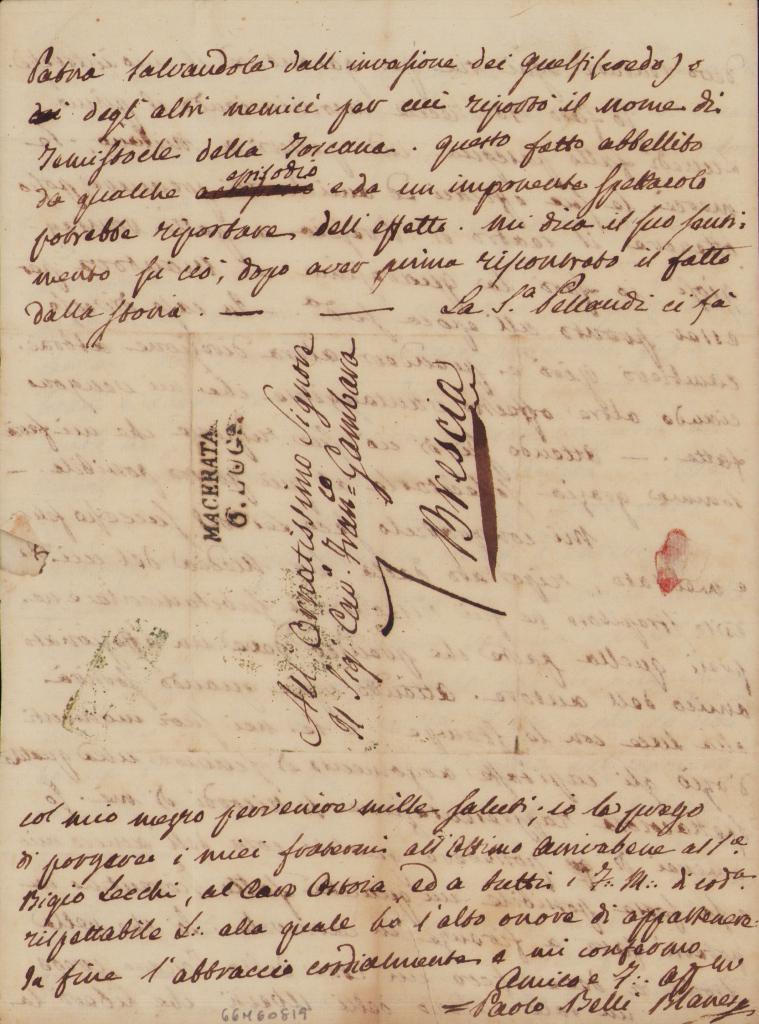 Patria salvandola dall invasione dei Guelfi (credo) o
dei degl' altri nemici per cui riportò il nome di
Temistocle della Toscana. questo fatto abbellito
da qualche episodio e da un imponente spettacolo
potrebbe riportare dell' effetto. mi dica il suo senti:
mento su ciò, dopo aver prima riscontrato il fatto
dalla storia. — — La S.ª Pellandi ci fà
MACERATA
6. LUG.
All Ornatissimo Signore
Il Sig.r Cav.e Fran=co Gambara
Brescia
col mio mezzo pervenire mille saluti; io la prego
di porgere i miei fraterni all' Ottimo Arrivabene al
Bigio Lecchi, al Caro Ostoia, ed a tutti i F. M.: di cod.a
rispettabile L:. alla quale ho l'alto onore di appartenere
In fine l'abbraccio cordialmente e mi confermo
Amico e F:. aff.mo
= Paolo Belli Blanes
66M60819